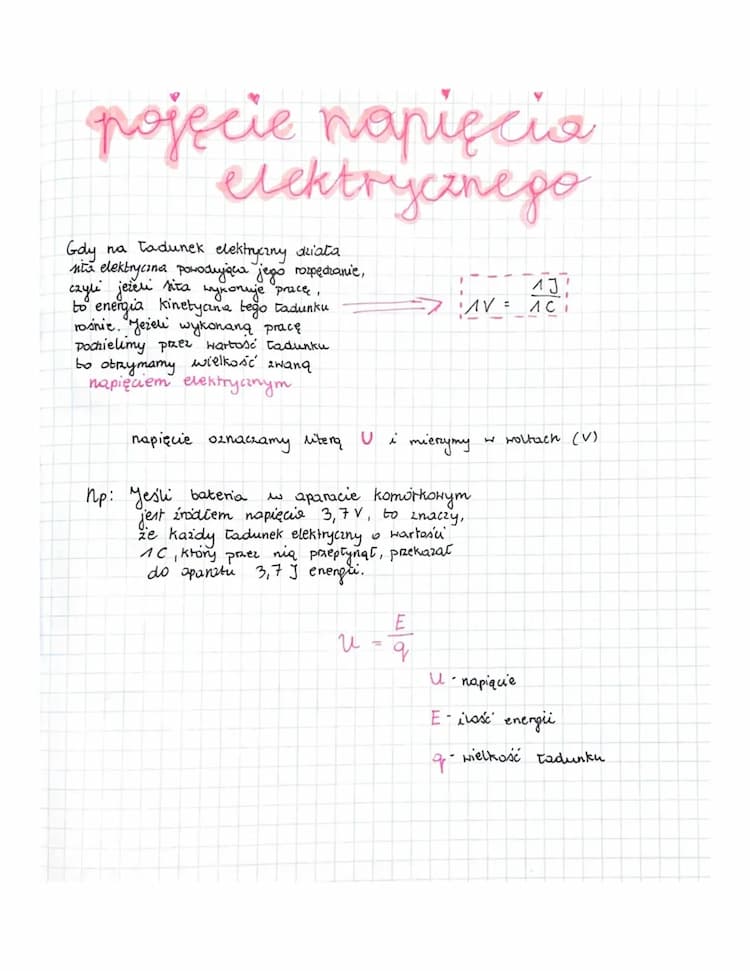 pojęcie napięcia
elektrycznego
Gdy na ładunek elektryczny działa
siła elektryczna powodująca jego rozpędzanie,
czyli jeżeli siła wykonuje pracę,
to energia kinetyczna tego ładunku
rośnie. Jeżeli wykonaną pracę
podzielimy przez wartość ładunku
to otrzymamy wielkość zwaną
napięciem elektrycznym
1V = 1J / 1C
napięcie oznaczamy literą U i mierzymy w woltach (V)
Np: Jeśli bateria w aparacie komórkowym
jest źródłem napięcia 3,7V, to znaczy,
że każdy ładunek elektryczny o wartości
1C, który przez nią przepłynął, przekazał
do aparatu 3,7 J energii.
U = E / q
U - napięcie
E - ilość energii
q - wielkość ładunku